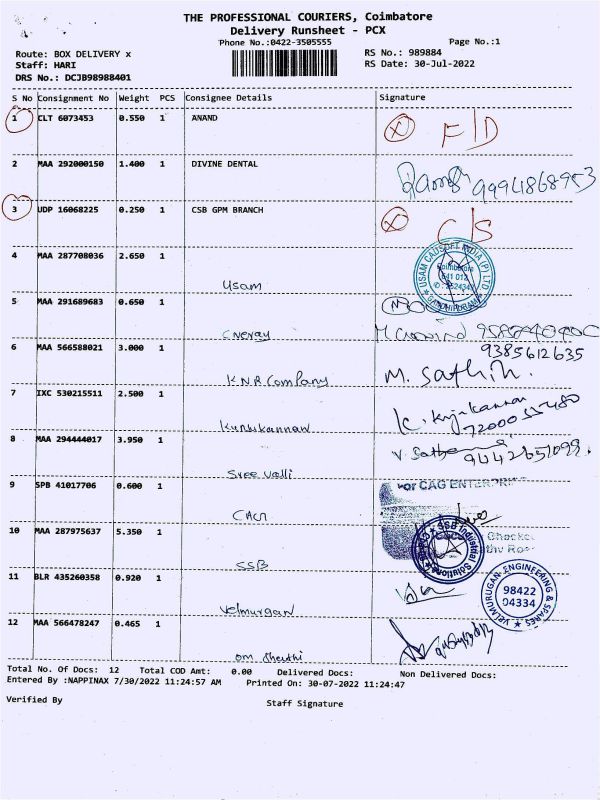 THE PROFESSIONAL COURIERS, Coimbatore
Delivery Runsheet - PCX
Phone No.:0422-3505555
Page No.:1
Route: BOX DELIVERY x
RS No.: 989884
Staff: HARI
RS Date: 30-Jul-2022
DRS No.: DCJB98988401
S No Consignment No Weight PCS Consignee Details Signature
1 CLT 6073453 0.550 1 ANAND X F/D
2 MAA 292000150 1.400 1 DIVINE DENTAL 9994868953
3 UDP 16068225 0.250 1 CSB GPM BRANCH X C/S
4 MAA 287708036 2.650 1 Usam
USAM CADSOFT INDIA (P) LTD
Coimbatore
641 012
5 MAA 291689683 0.650 1
9385612635
6 MAA 566588021 3.000 1 KNR Company M. Sathih.
7 IXC 530215511 2.500 1 Kunjukannan K. Kunjukannan
7200055480
8 MAA 294444017 3.950 1 Sree Valli
9442651099
9 SPB 41017706 0.600 1 CAG
For CAG ENTERPRI
10 MAA 287975637 5.350 1 SSB
SSB Industrial Solutions
11 BLR 435260358 0.920 1 Velmurgan
VELMURUGAN ENGINEERING & SPARES
98422
04334
12 MAA 566478247 0.465 1 om Shakthi
Total No. Of Docs: 12 Total COD Amt: 0.00 Delivered Docs: Non Delivered Docs:
Entered By :NAPPINAX 7/30/2022 11:24:57 AM Printed On: 30-07-2022 11:24:47
Verified By
Staff Signature